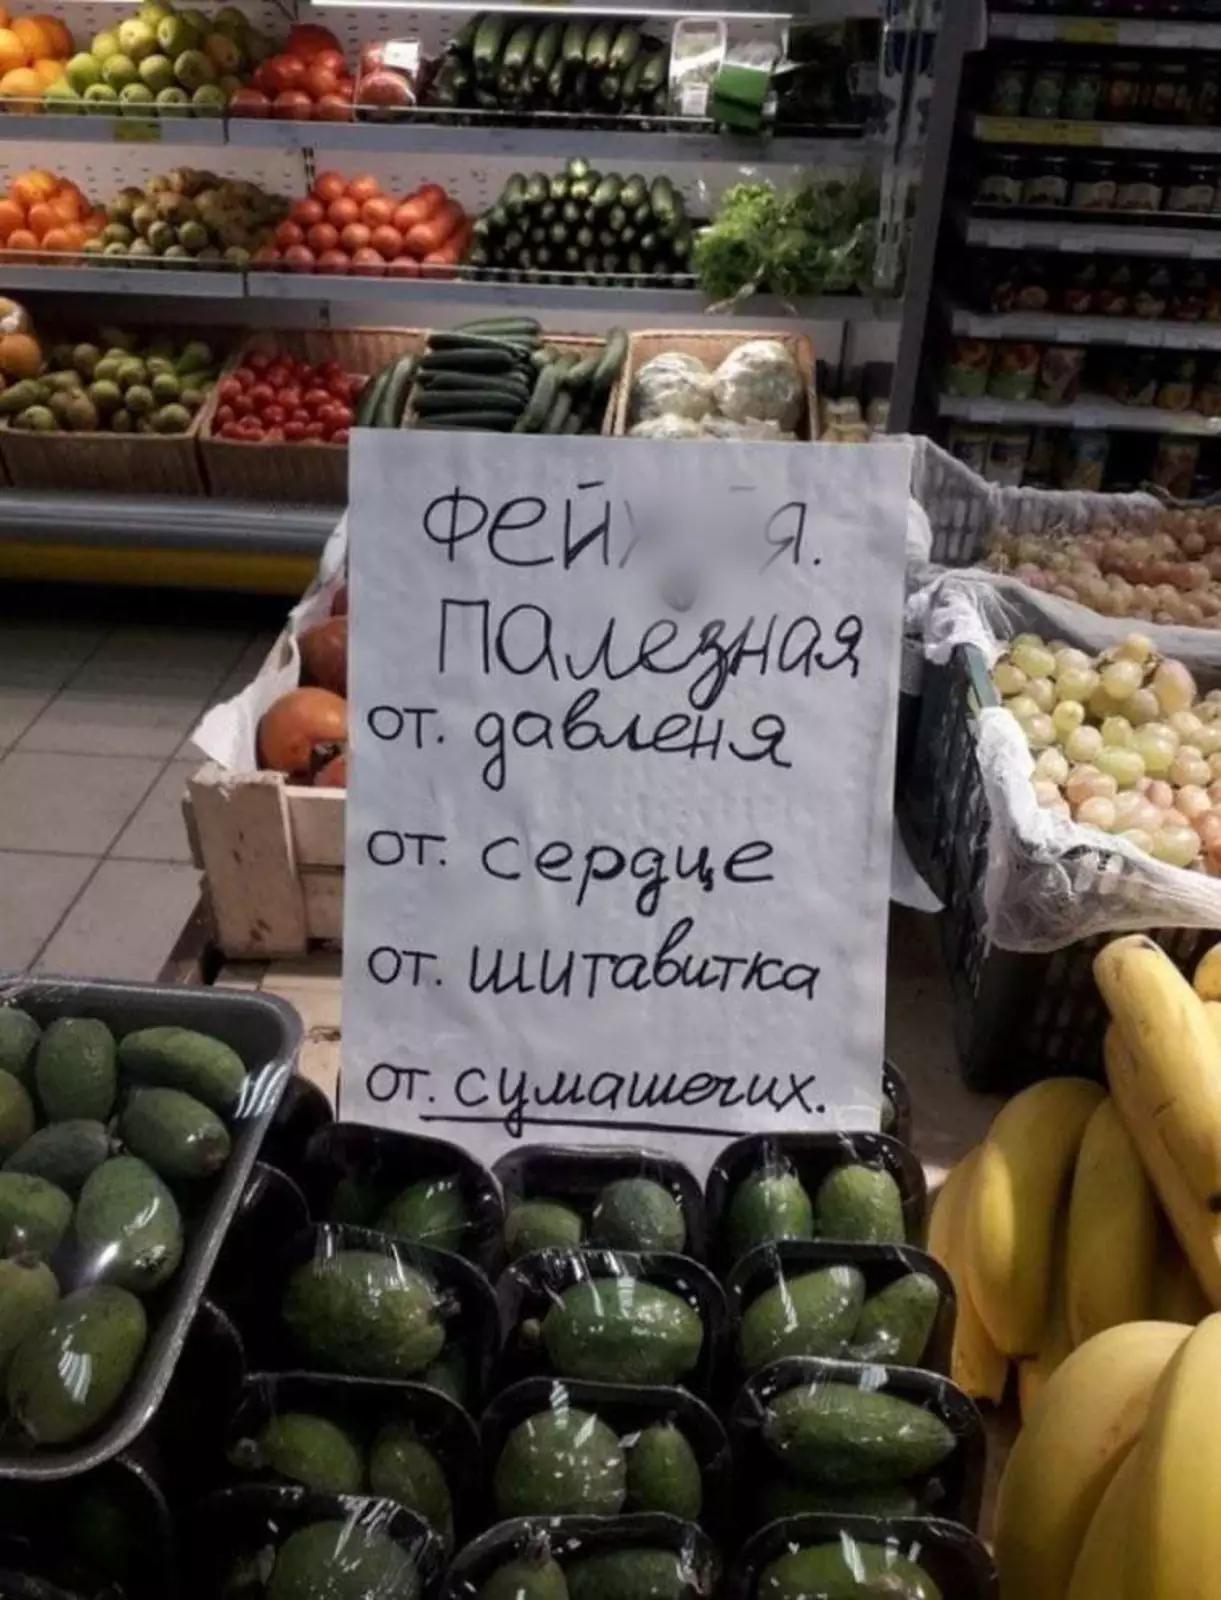 Полезная
от. давленя
от. сердце
от. шитавитка
от. сумашечих.